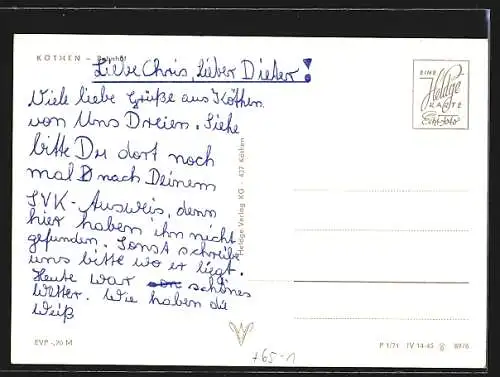 KÖTHEN – Bahnhof
Liebe Chris, lieber Dieter!
Viele liebe Grüße aus Köthen
von Uns Dreien. Siehe
bitte Du dort noch
mal nach Deinem
SVK-Ausweis, denn
hier haben ihn nicht
gefunden. Sonst schreibe
uns bitte wo er liegt.
Heute war schönes
Wetter. Wie haben die
Weiß
Heldge Verlag KG · 437 Köthen
EINE
Heldge
KARTE
Echt-Foto
EVP -,20 M
765-1
P 1/71 IV 14-45 8976